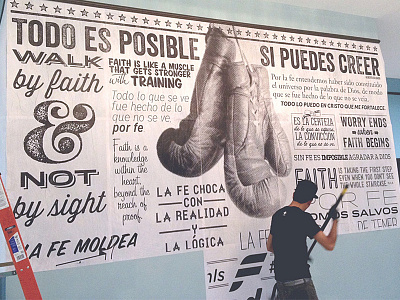 TODO ES POSIBLE
SI PUEDES CREER
WALK
by faith
&
NOT
by sight
LA FE MOLDEA
FAITH IS LIKE A MUSCLE
THAT GETS STRONGER
with TRAINING
Todo lo que se ve
fue hecho de lo
que no se ve.
por fe
Faith is a
knowledge
within the
heart,
beyond the
reach of
proof.
LA FE CHOCA
CON
LA REALIDAD
y
LA LÓGICA
Por la fe entendemos haber sido constituido
el universo por la palabra de Dios, de modo
que se fue hecho de lo que no se veía.
TODO LO PUEDO EN CRISTO QUE ME FORTALECE.
ES LA CERTEZA
de lo que se espera,
LA CONVICCIÓN
de lo que no se ve.
WORRY ENDS
when
FAITH BEGINS
SIN FE ES IMPOSIBLE AGRADAR A DIOS
FAITH IS TAKING THE FIRST STEP
EVEN WHEN YOU DON'T SEE
THE WHOLE STAIRCASE
POR FE
SOMOS SALVOS
DE TEMER